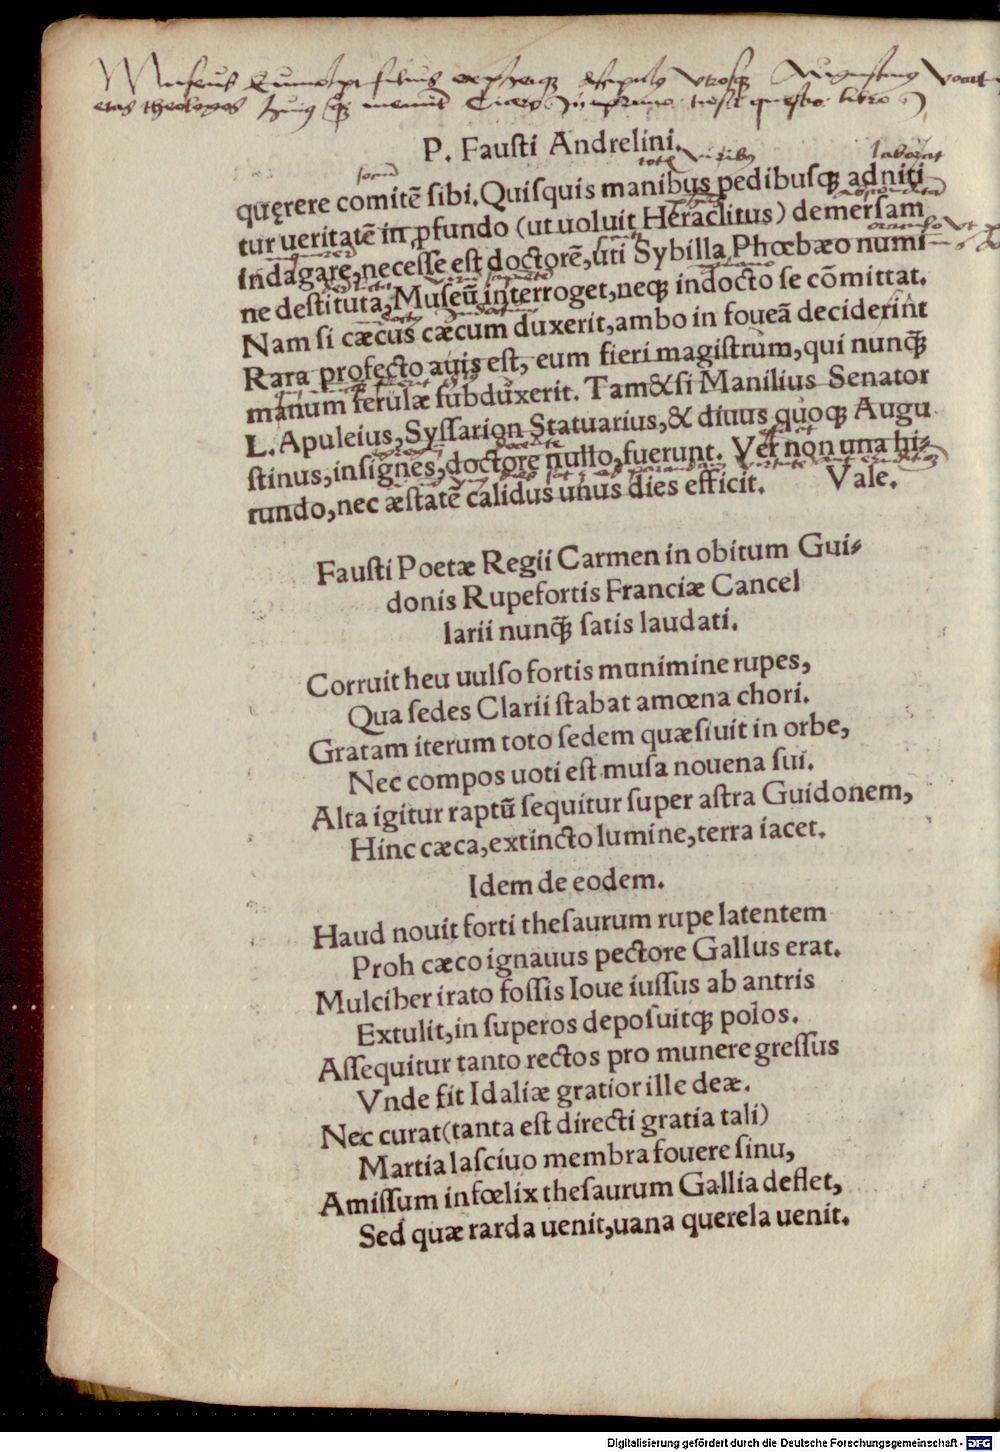 Museus Eumolpi filius orpheique discipulus Utrosque Augustinus vocat
etas theologos huius quoque meminit Cicero in primo tuscu questio: libro
P. Fausti Andrelini.
quęrere comitē ſibi. Quiſquis manibus pedibuſqꝫ adniti
tur ueritatē in ꝓfundo (ut uoluit Heraclitus) demerſam
indagare, neceſſe est doctorē, uti Sybilla Phœbæo numi
ne deſtituta, Muſeū interroget, neqꝫ indocto ſe cōmittat.
Nam ſi cæcus cæcum duxerit, ambo in foueā deciderint
Rara profecto auis eſt, eum fieri magiſtrum, qui nunqꝫ̃
manum ferulæ ſubduxerit. Tam&ſi Manilius Senator
L. Apuleius, Syſſarion Statuarius, & diuus quoqꝫ Augu
ſtinus, inſignes, doctore nullo, fuerunt. Ver non una hi-
rundo, nec æſtatē calidus unus dies efficit. Vale.
Fauſti Poetæ Regii Carmen in obitum Gui-
donis Rupefortis Franciæ Cancel
larii nunqꝫ̃ ſatis laudati.
Corruit heu uulſo fortis munimine rupes,
Qua ſedes Clarii ſtabat amœna chori.
Gratam iterum toto ſedem quæſiuit in orbe,
Nec compos uoti eſt muſa nouena ſui.
Alta igitur raptū ſequitur ſuper aſtra Guidonem,
Hinc cæca, extincto lumine, terra iacet.
Idem de eodem.
Haud nouit forti theſaurum rupe latentem
Proh cæco ignauus pectore Gallus erat.
Mulciber irato foſſis Ioue iuſſus ab antris
Extulit, in ſuperos depoſuitqꝫ polos.
Aſſequitur tanto rectos pro munere greſſus
Vnde fit Idaliæ gratior ille deæ.
Nec curat (tanta eſt directi gratia tali)
Martia laſciuo membra fouere ſinu,
Amiſſum infœlix theſaurum Gallia deflet,
Sed quæ rarda uenit, uana querela uenit.
Digitalisierung gefördert durch die Deutsche Forschungsgemeinschaft - DFG